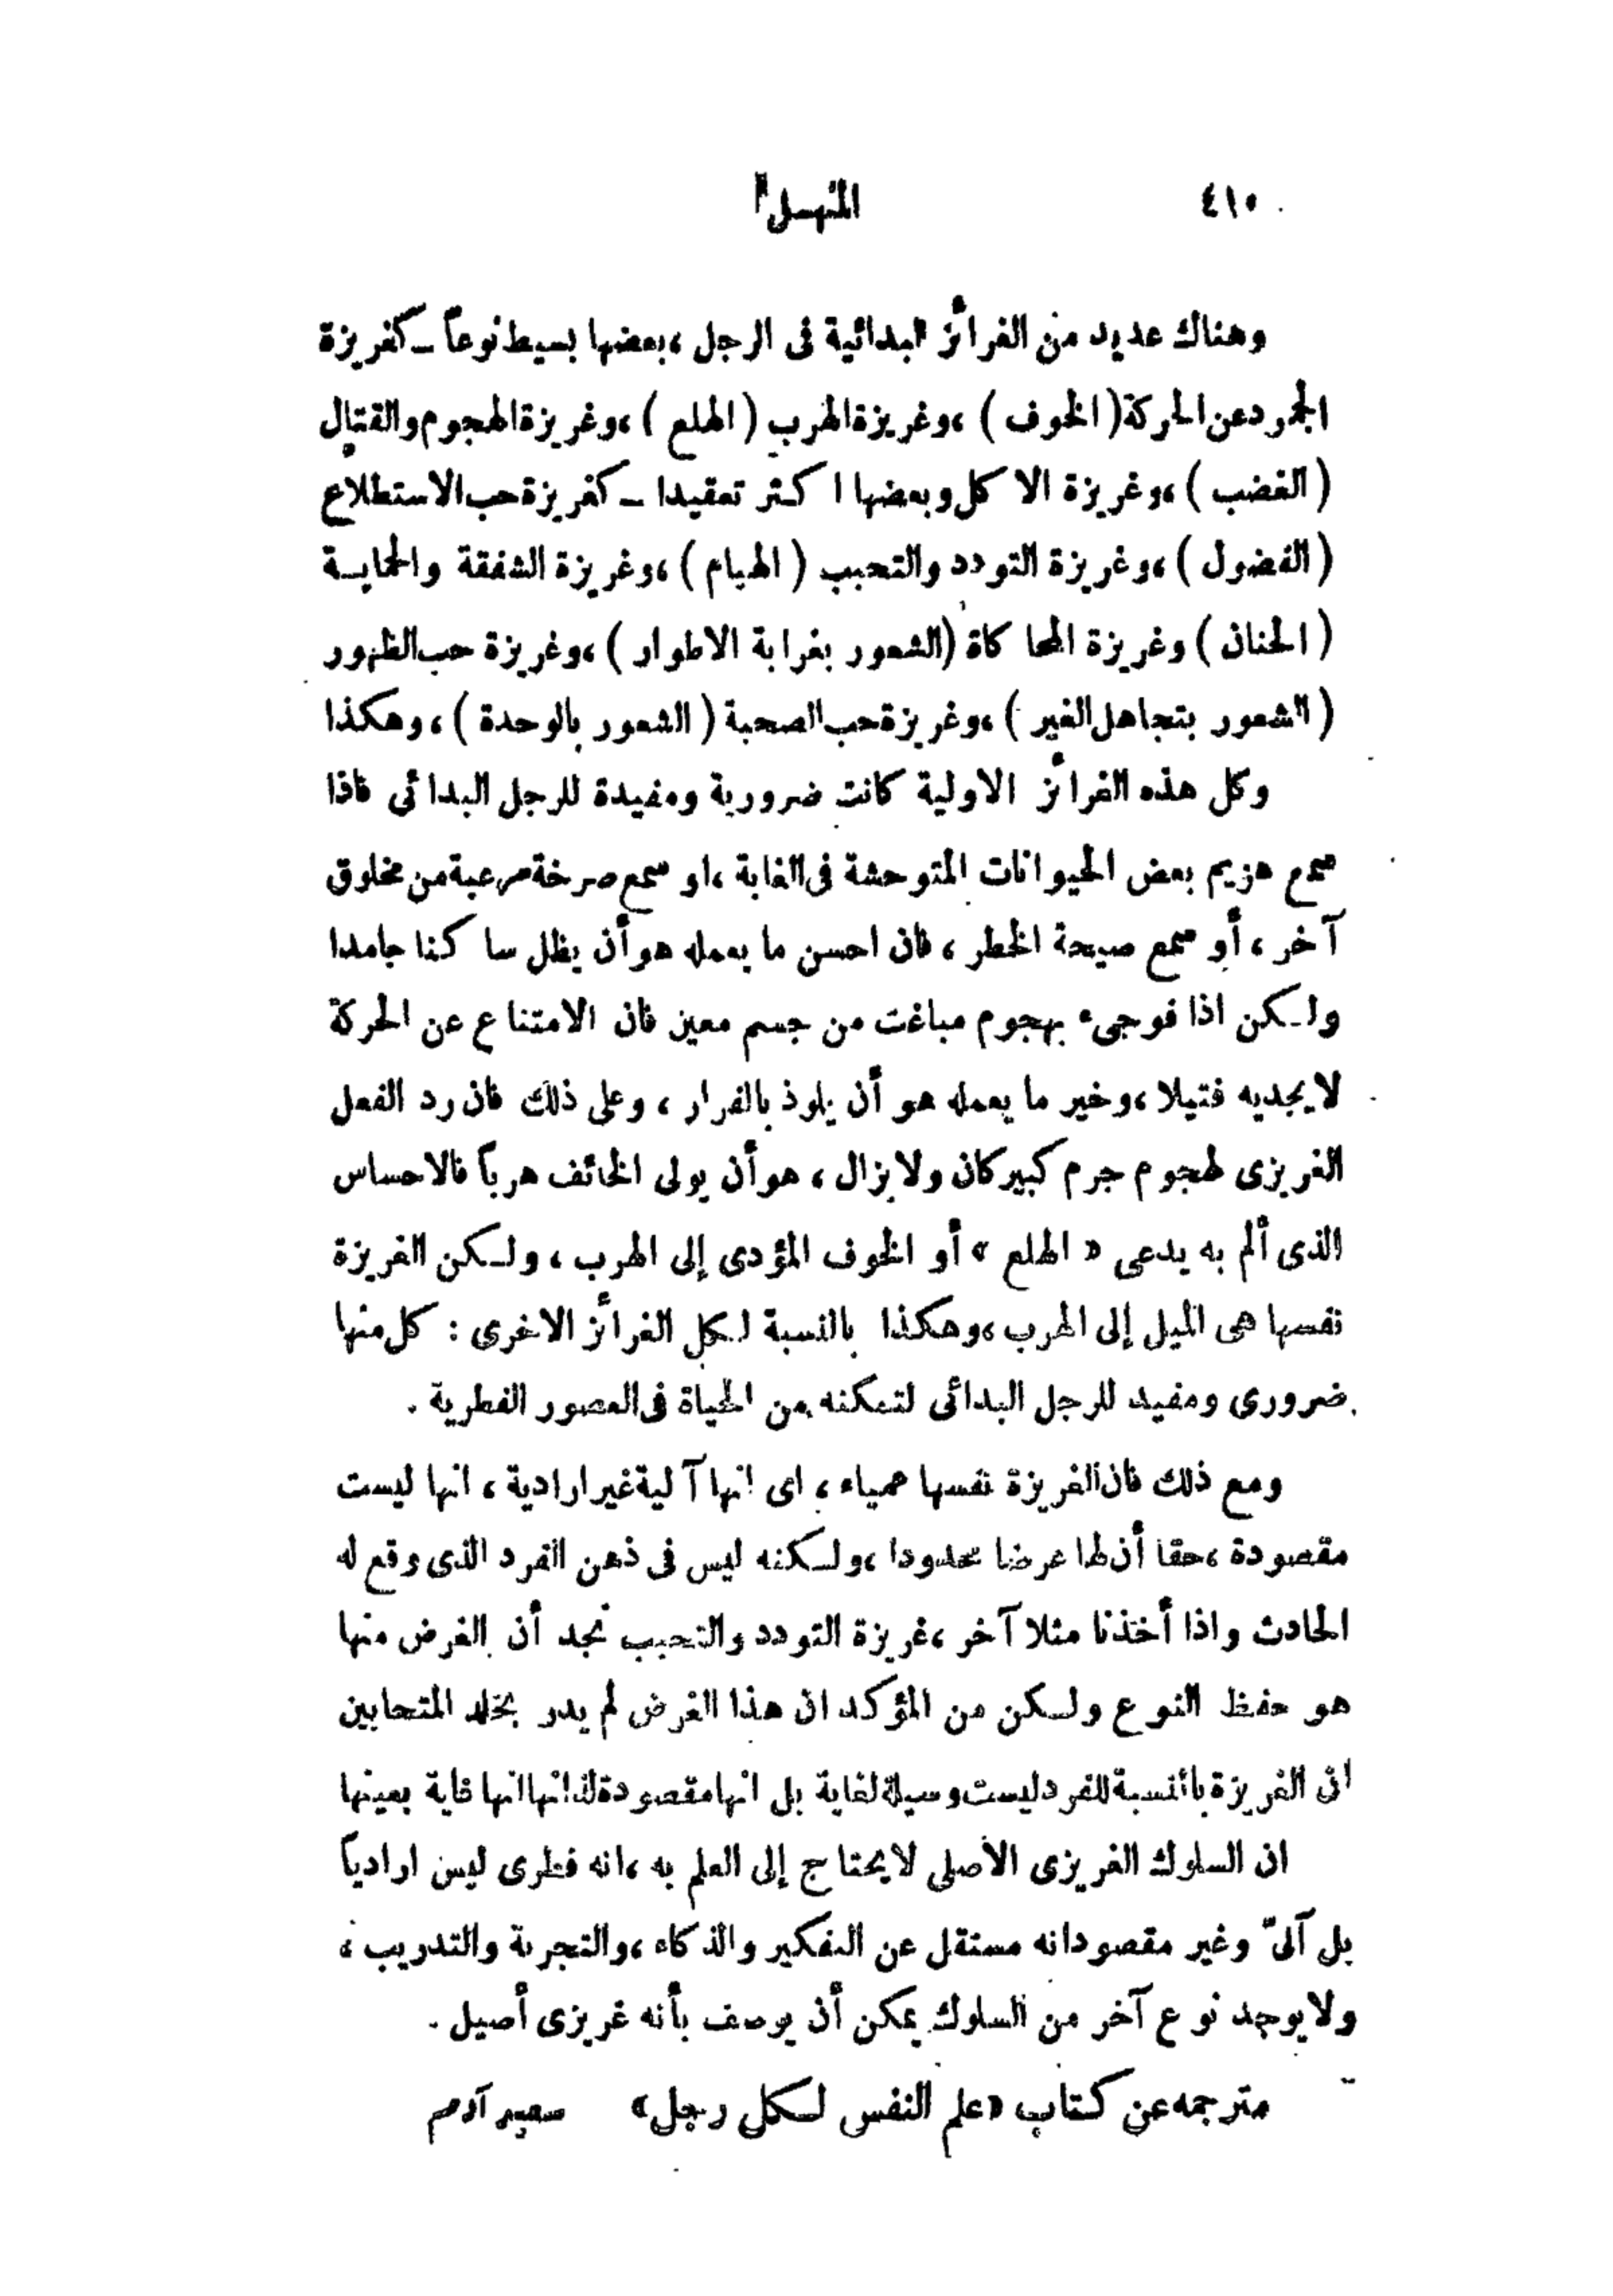 ٤١٠ المنهل
وهناك عديد من الغرائز البدائية فى الرجل ،بعضها بسيط نوعاً ــ كغريزة
الجمود عن الحركة (الخوف) ،وغريزة الهرب (الهلع) ،وغريزة الهجوم والقتال
(الغضب) ،وغريزة الاكل وبعضها اكثر تعقيدا ــ كغريزة حب الاستطلاع
(الفضول) ،وغريزة التودد والتحبب (الهيام) ،وغريزة الشفقة والحماية
(الحنان) وغريزة المحاكاة (الشعور بغرابة الاطوار) ،وغريزة حب الظهور
(الشعور بتجاهل الغير) ،وغريزة حب الصحبة (الشعور بالوحدة) ، وهكذا
وكل هذه الغرائز الاولية كانت ضرورية ومفيدة للرجل البدائى فاذا
سمع هزيم بعض الحيوانات المتوحشة فى الغابة ،او سمع صرخة مرعبة من مخلوق
آخر ، أو سمع صيحة الخطر ، فان احسن ما يعمله هو أن يظل ساكنا جامدا
ولكن اذا فوجىء بهجوم مباغت من جسم معين فان الامتناع عن الحركة
لا يجديه فتيلا ،وخير ما يعمله هو أن يلوذ بالفرار ، وعلى ذلك فان رد الفعل
الغريزى لهجوم جرم كبير كان ولا يزال ، هو أن يولى الخائف هرباً فالاحساس
الذى ألم به يدعى « الهلع » أو الخوف المؤدى إلى الهرب ، ولكن الغريزة
نفسها هى الميل إلى الهرب ،وهكذا بالنسبة لكل الغرائز الاخرى : كل منها
ضرورى ومفيد للرجل البدائى لتمكنه من الحياة فى العصور الفطرية .
ومع ذلك فان الغريزة نفسها عمياء ، اى انها آلية غير ارادية ، انها ليست
مقصودة ،حقا أن لها غرضا محدودا ،ولكنه ليس فى ذهن الفرد الذى وقع له
الحادث واذا أخذنا مثلا آخر ،غريزة التودد والتحبب نجد أن الغرض منها
هو حفظ النوع ولكن من المؤكد ان هذا الغرض لم يدر بخلد المتحابين
ان الغريزة بالنسبة للفرد ليست وسيلة لغاية بل انها مقصودة لذاتها انها غاية بعينها
ان السلوك الغريزى الأصلى لا يحتاج إلى العلم به ،انه فطرى ليس ارادياً
بل آلىّ وغير مقصود انه مستقل عن التفكير والذكاء ،والتجربة والتدريب ،
ولا يوجد نوع آخر من السلوك يمكن أن يوصف بأنه غريزى أصيل .
مترجمه عن كتاب «علم النفس لكل رجل» سعيد آدم